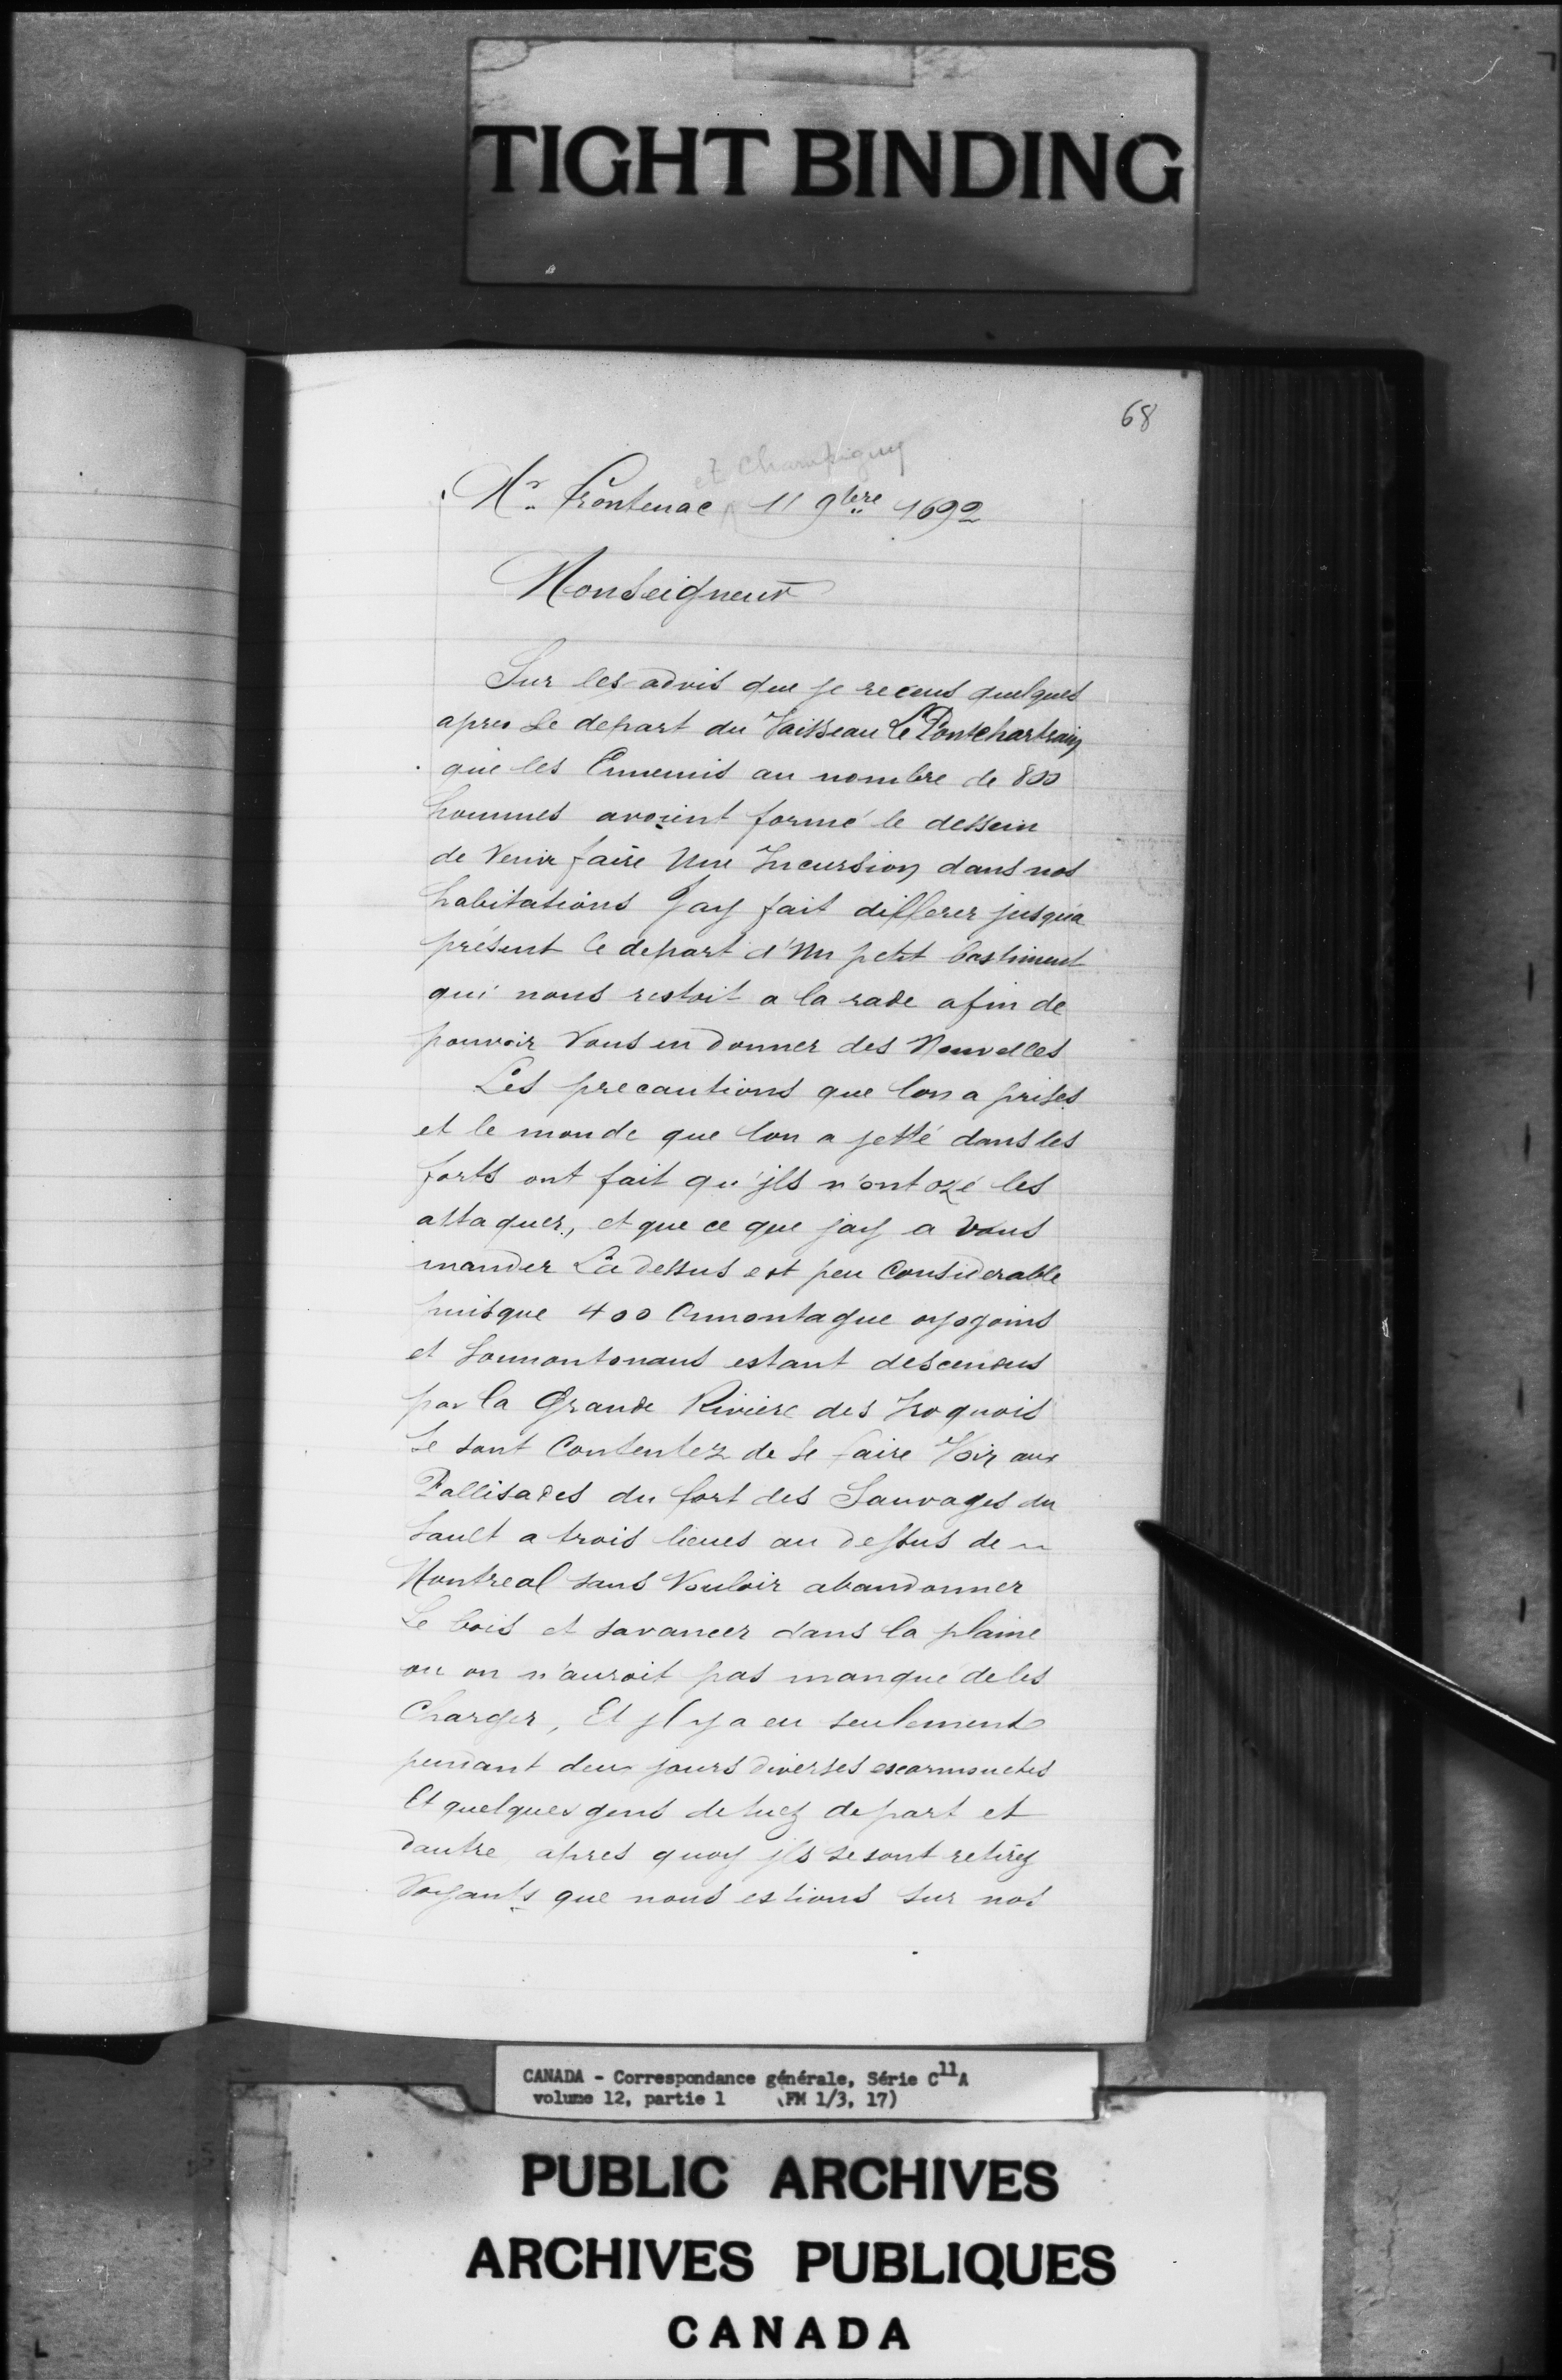 TIGHT BINDING
68
et Champigny
Mr. Frontenac 11 9bere 1692
Monseigneur
Sur les advis que je receus quelques
apres le depart du Vaisseau Le Pontchartrain
que les Ennemis au nombre de 800
hommes avoient formé le dessein
de Venir faire Une Incursion dans nos
habitations Jay fait differer jusqu'a
présent le depart d'Un petit bastiment
qui nous restoit a la rade afin de
pouvoir Vous en donner des Nouvelles
Les precautions que lon a prises
et le monde que lon a jetté dans les
forts ont fait qu'jls n'ont ozé les
attaquer, et que ce que jay a vous
mander La dessus est peu Considerable
puisque 400 Onnontague oyogoins
et Sonnontouans estant descendus
par la Grande Riviere des Iroquois
Se sont Contentez de se faire Voir aux
Pallisades du fort des Sauvages du
Sault a trois lieues au dessus de
Montreal sans Vouloir abandonner
Le bois et savancer dans la plaine
ou on n'auroit pas manqué de les
Charger, Et jl y a eu seulement
pendant deux jours diverses escarmouches
Et quelques gens de tuez de part et
dautre apres quoy jls se sont retirez
Voyants que nous estions sur nos
CANADA - Correspondance générale, Série C11A
volume 12, partie 1 (FM 1/3, 17)
PUBLIC ARCHIVES
ARCHIVES PUBLIQUES
CANADA